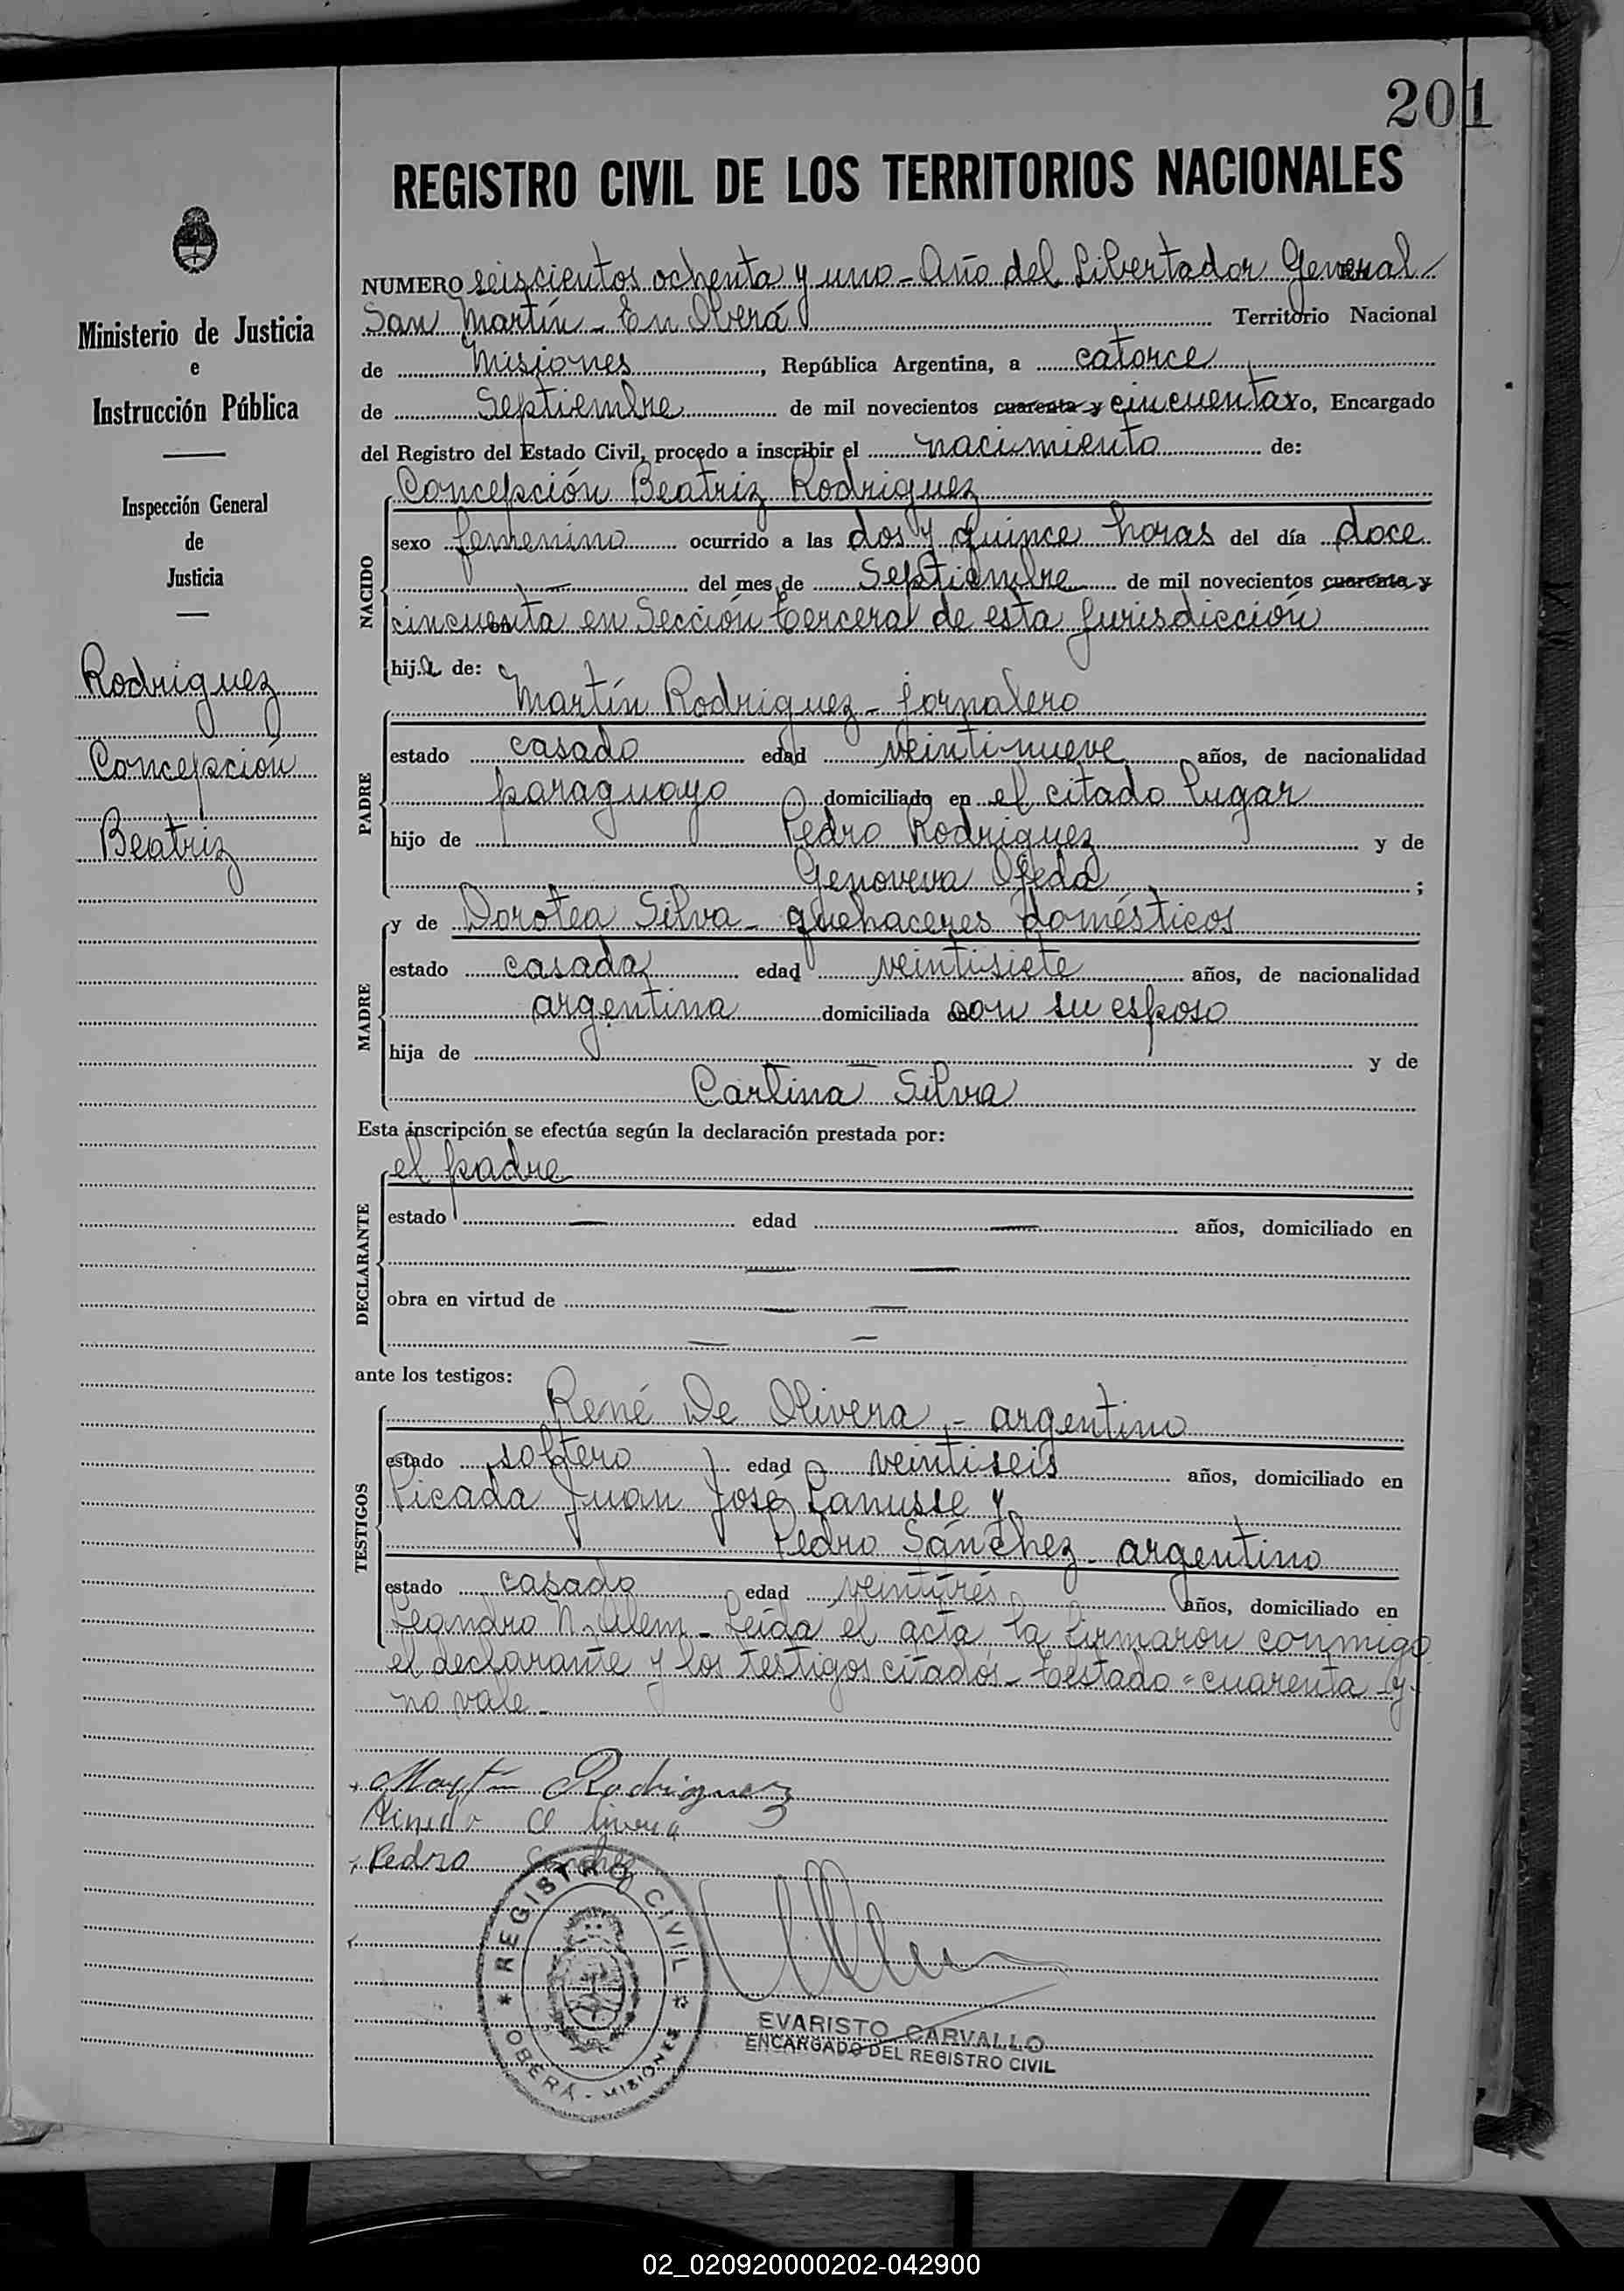 201
REGISTRO CIVIL DE LOS TERRITORIOS NACIONALES
Ministerio de Justicia
e
Instrucción Pública
Inspección General
de
Justicia
Rodriguez
Concepción
Beatriz
NUMERO seiscientos ochenta y uno - Año del Libertador General
San Martín - En Oberá Territorio Nacional
de Misiones, República Argentina, a catorce
de Septiembre de mil novecientos cuarenta y cincuenta yo, Encargado
del Registro del Estado Civil, procedo a inscribir el nacimiento de:
Concepción Beatriz Rodriguez
NACIDO
sexo femenino ocurrido a las dos y quince horas del día doce
del mes de Septiembre de mil novecientos cuarenta y
cincuenta en Sección tercera de esta jurisdicción
hija de:
Martín Rodriguez - jornalero
PADRE
estado casado edad veintinueve años, de nacionalidad
paraguayo domiciliado en el citado lugar
hijo de Pedro Rodriguez y de
Genoveva Ojeda ;
y de Dorotea Silva - quehaceres domésticos
MADRE
estado casada edad veintisiete años, de nacionalidad
argentina domiciliada con su esposo
hija de — y de
Carlina Silva
Esta inscripción se efectúa según la declaración prestada por:
el padre
DECLARANTE
estado — edad — años, domiciliado en
— —
obra en virtud de — —
— —
ante los testigos:
René De Olivera - argentino
TESTIGOS
estado soltero edad veintiseis años, domiciliado en
Picada Juan José Lanusse y
Pedro Sánchez - argentino
estado casado edad veintitrés años, domiciliado en
Leandro N. Alem - Leída el acta la firmaron conmigo
el declarante y los testigos citados - testado = cuarenta y
no vale -
Martín Rodriguez
Pedro Sanchez
REGISTRO CIVIL
OBERÁ - MISIONES
EVARISTO CARVALLO
ENCARGADO DEL REGISTRO CIVIL
02_020920000202-042900